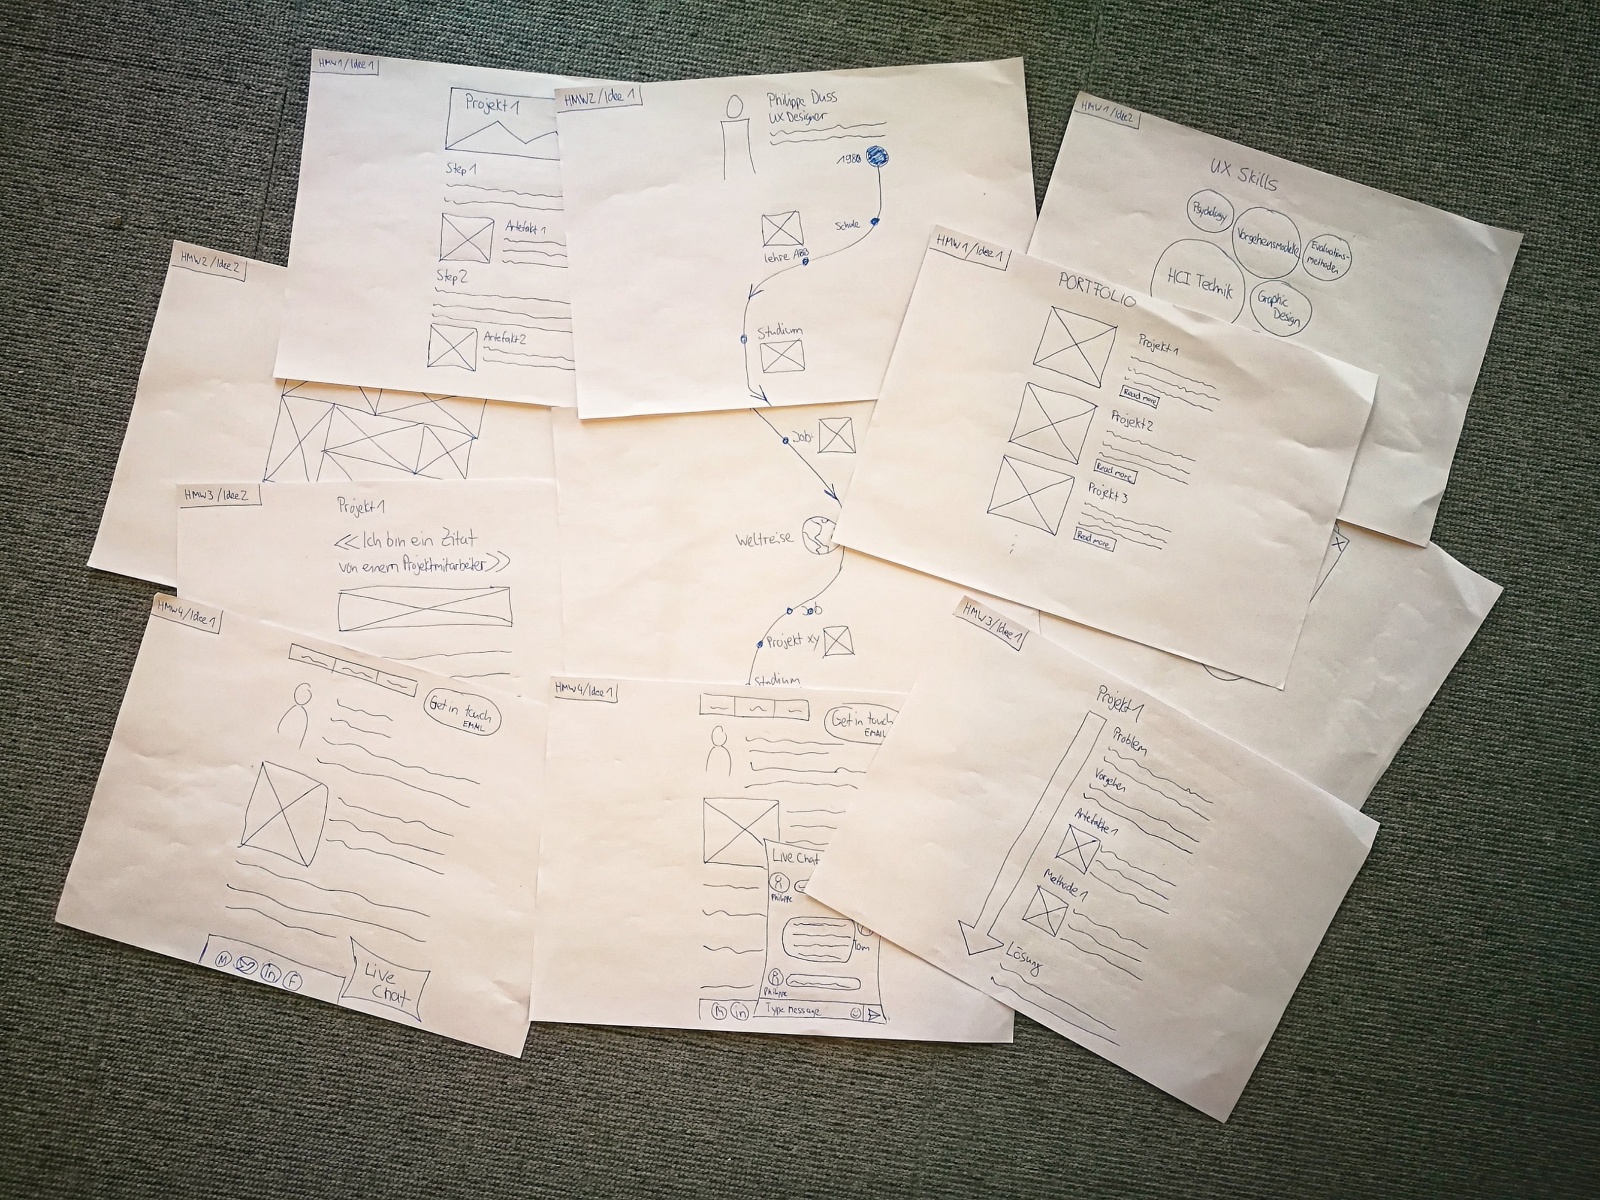 HMW1/Idee1
Projekt 1
Step 1
Artefakt 1
Step 2
Artefakt 2
HMW2/Idee1
Philippe Duss
UX Designer
1980
Schule
lehre ABB
Studium
Job
Weltreise
Job
Projekt xy
Studium
HMW1/Idee2
UX Skills
Psychology
Vorgehensmodelle
Evaluations-
methoden
HCI Technik
Graphic
Design
HMW1/Idee1
PORTFOLIO
Projekt 1
Read more
Projekt 2
Read more
Projekt 3
Read more
HMW2/Idee2
HMW3/Idee2
Projekt 1
<<Ich bin ein Zitat
von einem Projektmitarbeiter>>
HMW4/Idee1
Get in touch
EMAIL
M
in
F
Live
Chat
HMW4/Idee1
Get in touch
EMAIL
Live Chat
Philippe
Tom
Philippe
Type message
M
in
HMW3/Idee1
Projekt 1
Problem
Vorgehen
Artefakte 1
Methode 1
Lösung